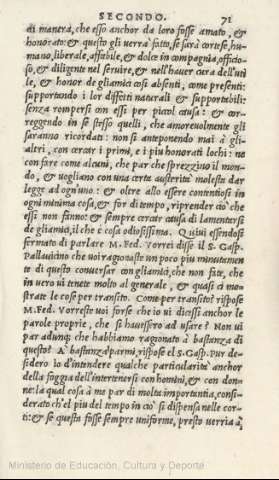 SECONDO. 71
di manera, che esso anchor da loro fosse amato, &
honorato: & questo gli verrà fatto, se sarà cortese, hu-
mano, liberale, affabile, & dolce in compagnia, officio-
so, & diligente nel seruire, & nell'hauer cura dell'uti
le, & honor de gliamici cosi absenti, come presenti:
supportando i lor diffetti naturali & supportabili
senza rompersi con essi per picol causa: & cor-
reggendo in se stesso quelli, che amoreuolmente gli
saranno ricordati: non si anteponendo mai à gli
altri, con cercar i primi, e i piu honorati lochi: ne
con fare come alcuni, che par che sprezzino il mon-
do, & uogliano con una certa austerità molesta dar
legge ad ogn'uno: & oltre allo essere contentiosi in
ogni minima cosa, & for di tempo, riprender ciò che
essi non fanno: & sempre cercar causa di lamentarsi
de gliamici, il che è cosa odiosissima. Quiui essendosi
fermato di parlare M. Fed. Vorrei disse il S. Gasp.
Pallauicino che voi ragionaste un poco piu minutamen
te di questo conuersar con gliamici, che non fate, che
in vero ui tenete molto al generale, & quasi ci mo-
strate le cose per transito. Come per transito? rispose
M. Fed. Vorreste uoi forse che io ui dicessi anchor le
parole proprie, che si hauessero ad usare? Non ui
par adunq; che habbiamo ragionato à bastanza di
questo? A' bastanza parmi, rispose el S. Gasp. Pur de-
sidero io d'intendere qualche particularità anchor
della foggia dell'intertenersi con homini, & con don-
ne: la qual cosa à me par di molta importantia, consi-
derato.ch'el piu del tempo in ciò si dispensa nelle cor-
ti: & se questa fosse sempre uniforme, presto verria à,
Ministerio de Educación, Cultura y Deporte